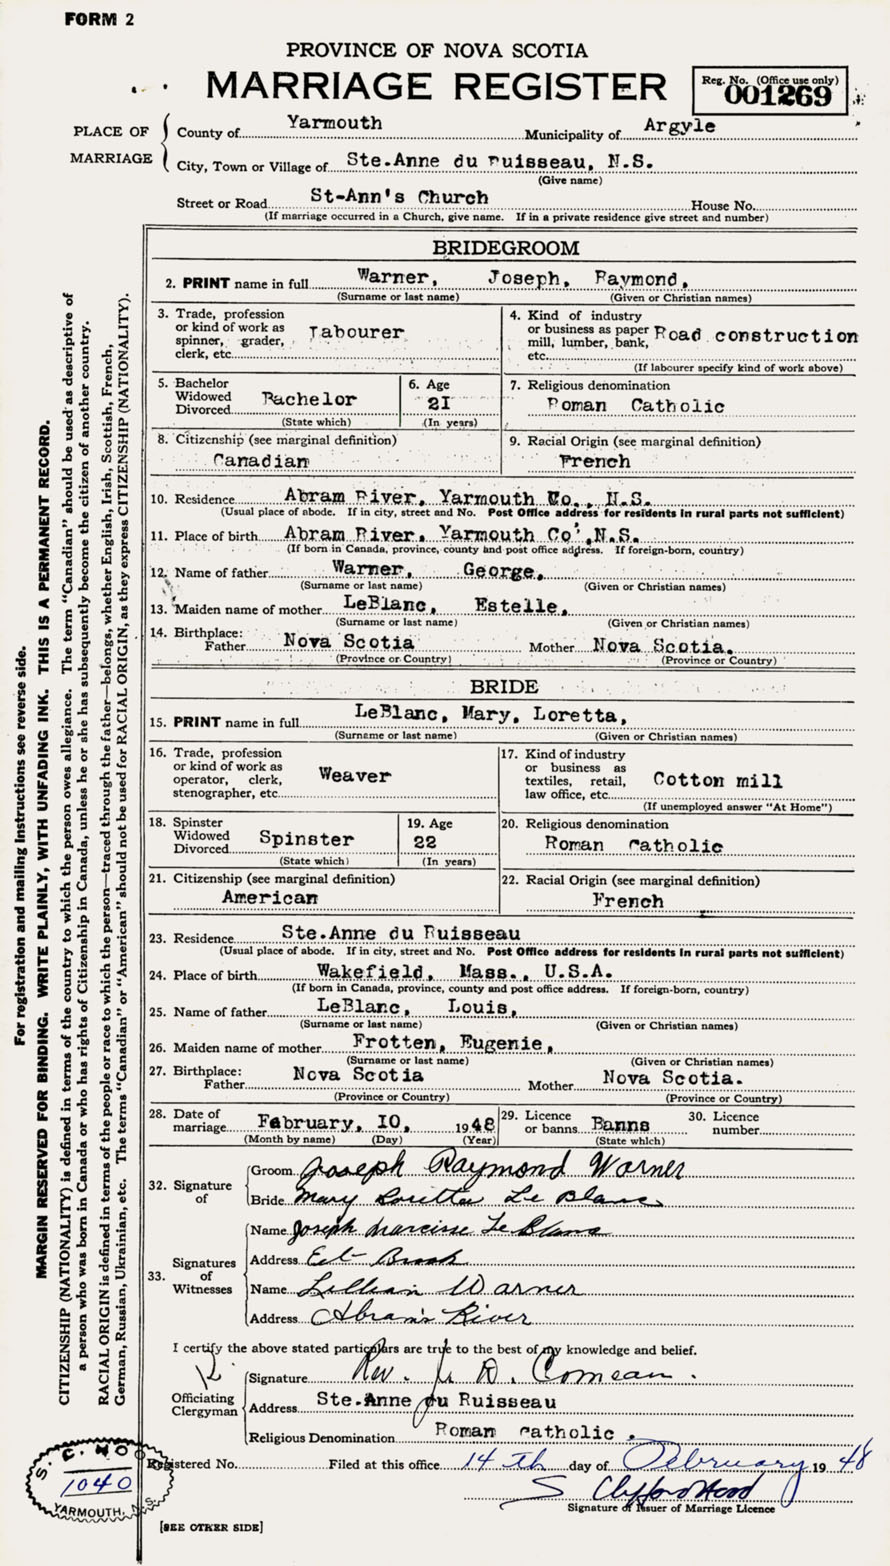 FORM 2
PROVINCE OF NOVA SCOTIA
MARRIAGE REGISTER
Reg. No. (Office use only)
001269
PLACE OF MARRIAGE
County of Yarmouth Municipality of Argyle
City, Town or Village of Ste.Anne du Ruisseau, N.S.
(Give name)
Street or Road St-Ann's Church House No.
(If marriage occurred in a Church, give name. If in a private residence give street and number)
BRIDEGROOM
2. PRINT name in full Warner, Joseph, Raymond,
(Surname or last name) (Given or Christian names)
3. Trade, profession or kind of work as spinner, grader, clerk, etc. Labourer
4. Kind of industry or business as paper mill, lumber, bank, etc. Road construction
(If labourer specify kind of work above)
5. Bachelor Widowed Divorced Bachelor
(State which)
6. Age 2I
(In years)
7. Religious denomination
Roman Catholic
8. Citizenship (see marginal definition)
Canadian
9. Racial Origin (see marginal definition)
French
10. Residence Abram River, Yarmouth Co., N.S.
(Usual place of abode. If in city, street and No. Post Office address for residents in rural parts not sufficient)
11. Place of birth Abram River, Yarmouth Co', N.S.
(If born in Canada, province, county and post office address. If foreign-born, country)
12. Name of father Warner, George,
(Surname or last name) (Given or Christian names)
13. Maiden name of mother LeBlanc, Estelle,
(Surname or last name) (Given or Christian names)
14. Birthplace:
Father Nova Scotia Mother Nova Scotia.
(Province or Country) (Province or Country)
BRIDE
15. PRINT name in full LeBlanc, Mary, Loretta,
(Surname or last name) (Given or Christian names)
16. Trade, profession or kind of work as operator, clerk, stenographer, etc. Weaver
17. Kind of industry or business as textiles, retail, law office, etc. Cotton mill
(If unemployed answer "At Home")
18. Spinster Widowed Divorced Spinster
(State which)
19. Age 22
(In years)
20. Religious denomination
Roman Catholic
21. Citizenship (see marginal definition)
American
22. Racial Origin (see marginal definition)
French
23. Residence Ste.Anne du Ruisseau
(Usual place of abode. If in city, street and No. Post Office address for residents in rural parts not sufficient)
24. Place of birth Wakefield, Mass., U.S.A.
(If born in Canada, province, county and post office address. If foreign-born, country)
25. Name of father LeBlanc, Louis,
(Surname or last name) (Given or Christian names)
26. Maiden name of mother Frotten, Eugenie,
(Surname or last name) (Given or Christian names)
27. Birthplace:
Father Nova Scotia Mother Nova Scotia.
(Province or Country) (Province or Country)
28. Date of marriage February, IO, 1948
(Month by name) (Day) (Year)
29. Licence or banns Banns
(State which)
30. Licence number
32. Signature of
Groom Joseph Raymond Warner
Bride Mary Loretta Le Blanc
33. Signatures of Witnesses
Name Joseph Narcisse Le Blanc
Address Eel Brook
Name Lillian Warner
Address Abram's River
I certify the above stated particulars are true to the best of my knowledge and belief.
Officiating Clergyman
Signature Rev. D. Comeau.
Address Ste.Anne du Ruisseau
Religious Denomination Roman Catholic.
Registered No. Filed at this office 14 Th day of February 1948
S Clifford Hood
Signature of Issuer of Marriage Licence
[SEE OTHER SIDE]
1040
YARMOUTH, N.S.
For registration and mailing instructions see reverse side.
MARGIN RESERVED FOR BINDING. WRITE PLAINLY, WITH UNFADING INK. THIS IS A PERMANENT RECORD.
CITIZENSHIP (NATIONALITY) is defined in terms of the country to which the person owes allegiance. The term "Canadian" should be used as descriptive of
a person who was born in Canada or who has rights of Citizenship in Canada, unless he or she has subsequently become the citizen of another country.
RACIAL ORIGIN is defined in terms of the people or race to which the person—traced through the father—belongs, whether English, Irish, Scottish, French,
German, Russian, Ukrainian, etc. The terms "Canadian" or "American" should not be used for RACIAL ORIGIN, as they express CITIZENSHIP (NATIONALITY).